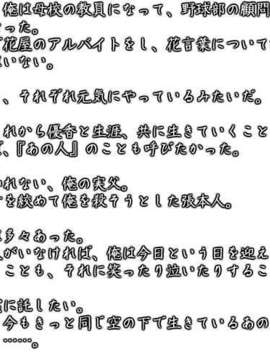 俺は母校の教員になって、野球部の顧問
った。
花屋のアルバイトをし、花言葉について
いない。
、それぞれ元気にやっているみたいだ。
れから優香と生涯、共に生きていくこと
、『あの人』のことも呼びたかった。
れない、俺の実父。
を絞めて俺を救そうとした張本人。
多々あった。
がいなければ、俺は今日という日を迎え
ことも、それに笑ったり泣いたりするこ
に託したい。
今もきっと同じ空の下で生きているあの
……。